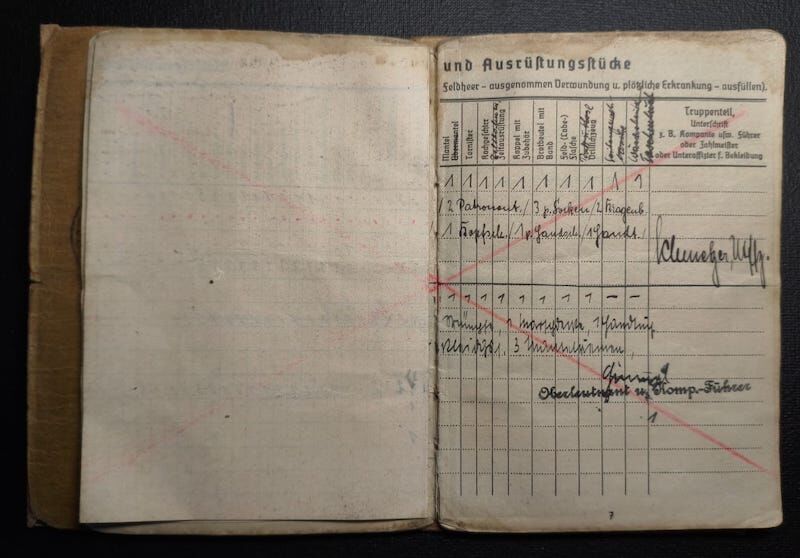 und Ausrüstungsstücke
Feldheer – ausgenommen Verwundung u. plötzliche Erkrankung – ausfüllen).
Mantel
Übermantel
Tornister
Kochgeschirr
Zeltausrüstung
Koppel mit Zubehör
Brotbeutel mit Band
Feld-(Labe-) Flasche
Drillichzeug
Truppenteil,
Unterschrift
z. B. Kompanie usw. Führer
oder Zahlmeister
oder Unteroffizier f. Bekleidung
1 1 1 1 1 1 1 1 1 1
/ 2 Patronent. / 3 p. Socken / 2 Kragenb.
1 Kopfsch. / 1 p. Handsch. / 1 Handt. /
Uffz.
1 1 1 1 1 1 1 1 – –
Strümpfe, 1
3 Mantelriemen,
Oberleutnant u. Komp.-Führer
1
7